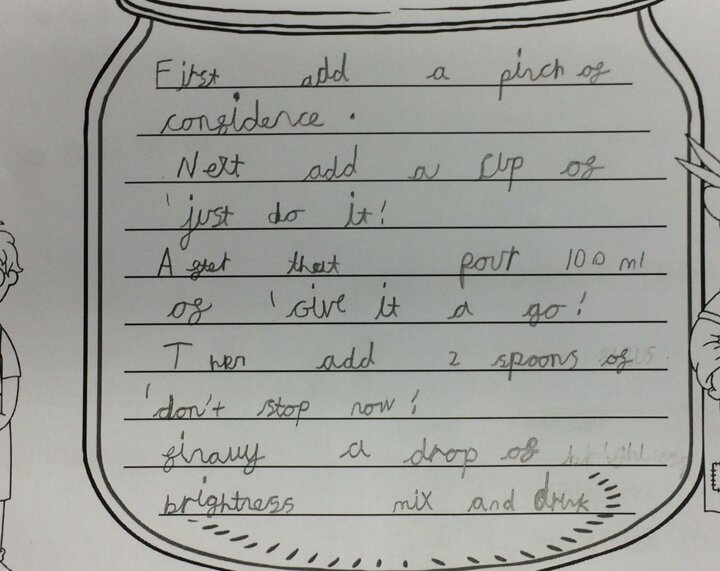 First add a pinch of
confidence.
Next add a cup of
'just do it!
After that pour 100 ml
of 'give it a go!
Then add 2 spoons of
'don't stop now!
finally a drop of
brightness mix and drink